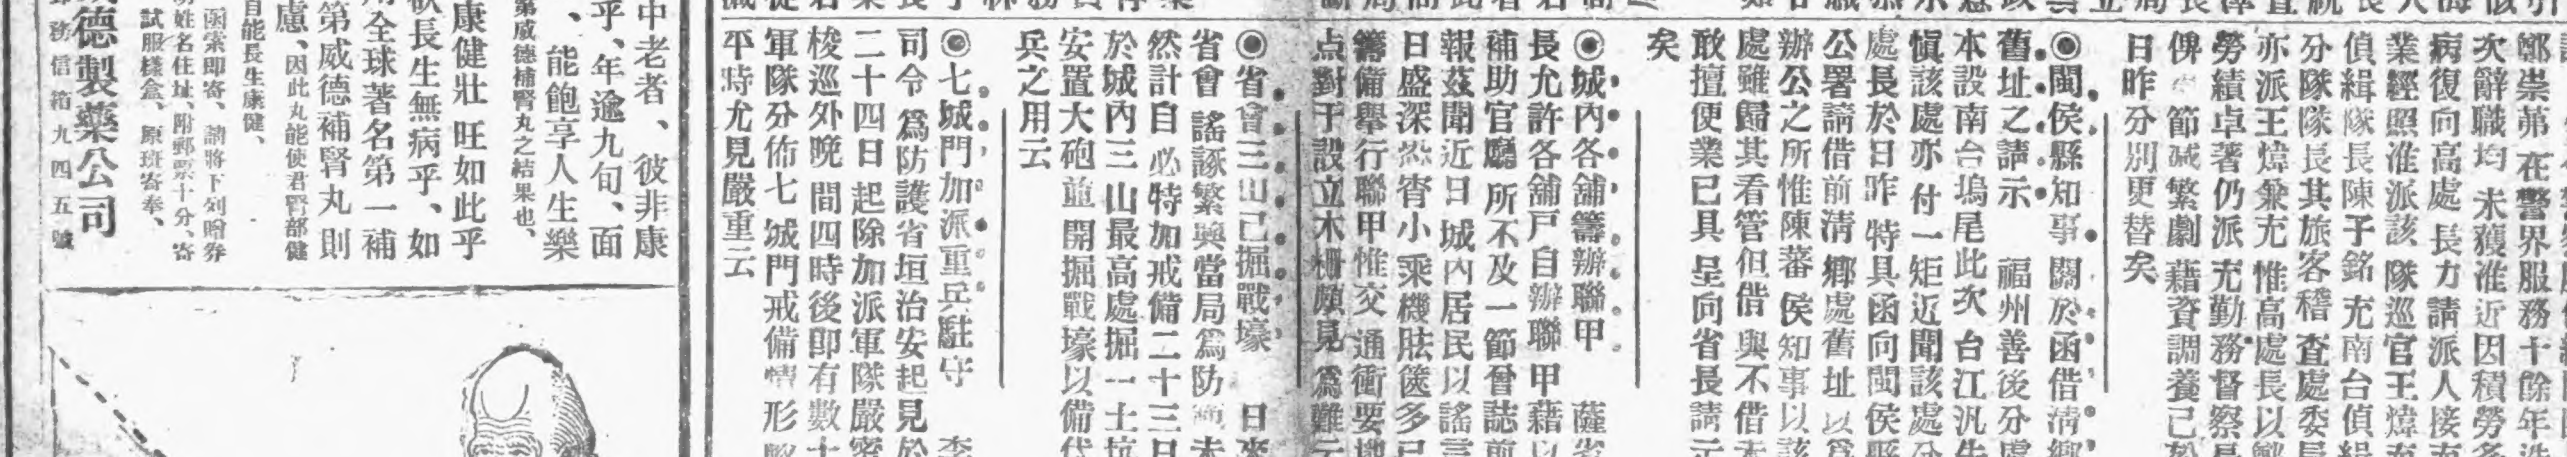 鄭崇茀 在警界服務十餘年
次辭職均 未獲准近因積勞
病復向高處 長力請派人接
業經照准派該 隊巡官王煒
偵緝隊長陳子銘充南台偵緝
分隊隊長其旅客稽 查處委
亦派王煒兼充 惟高處長以
勞績卓著仍派 充勤務督察
俾 節誠繁劇 藉資調養已
日昨分別更替矣
◉閩侯縣知事 關於函借清鄉
舊址之請示 福州善後分處
本設南台塢尾此次 台江汎
愼該處亦付一炬近聞該處
處長於日昨 特具函向閩侯縣
公署請借前清 鄉處舊址以爲
辦公之所惟陳蕃 侯知事以該
處雖歸其看管但借 與不借未
敢擅便業已具 呈向省長請示
矣
◉城內各舖籌辦聯甲 薩省
長允許各舖戶自辦聯甲藉以
補助官廳 所不及一節曾誌前
報茲聞近日 城內居民以謠言
日盛深恐宵小 乘機胠篋多已
籌備舉行聯甲惟交 通衝要地
点對于設立木柵頗見 爲難云
◉省會三山已掘戰壕 日來
省會 謠諑繁興當局爲防 未
然計自 必特加戒備二十三日
於城內三山最高處掘一土坑
安置大砲並 開掘戰壕以備
兵之用云
◉七城門加派重兵駐守 李
司令 爲防護省垣治安起見於
二十四日 起除加派軍隊嚴密
梭巡外晚 間四時後即有數十
軍隊分佈七 城門戒備情形
平時尤見嚴重云
中老者、彼非康
乎、年逾九旬、面
、能飽享人生樂
第威德補腎丸之結果也、
康健壯 旺如此乎
欲長生無病乎、如
用全球著名第一補
第威德補腎丸則
慮、因此丸能使君腎部健
自能長生康健、
函索即寄、請將下列贈券
姓名住址、附郵票十分、寄
試服樣盒、原班寄奉、
威德製藥公司
務信箱九四五號